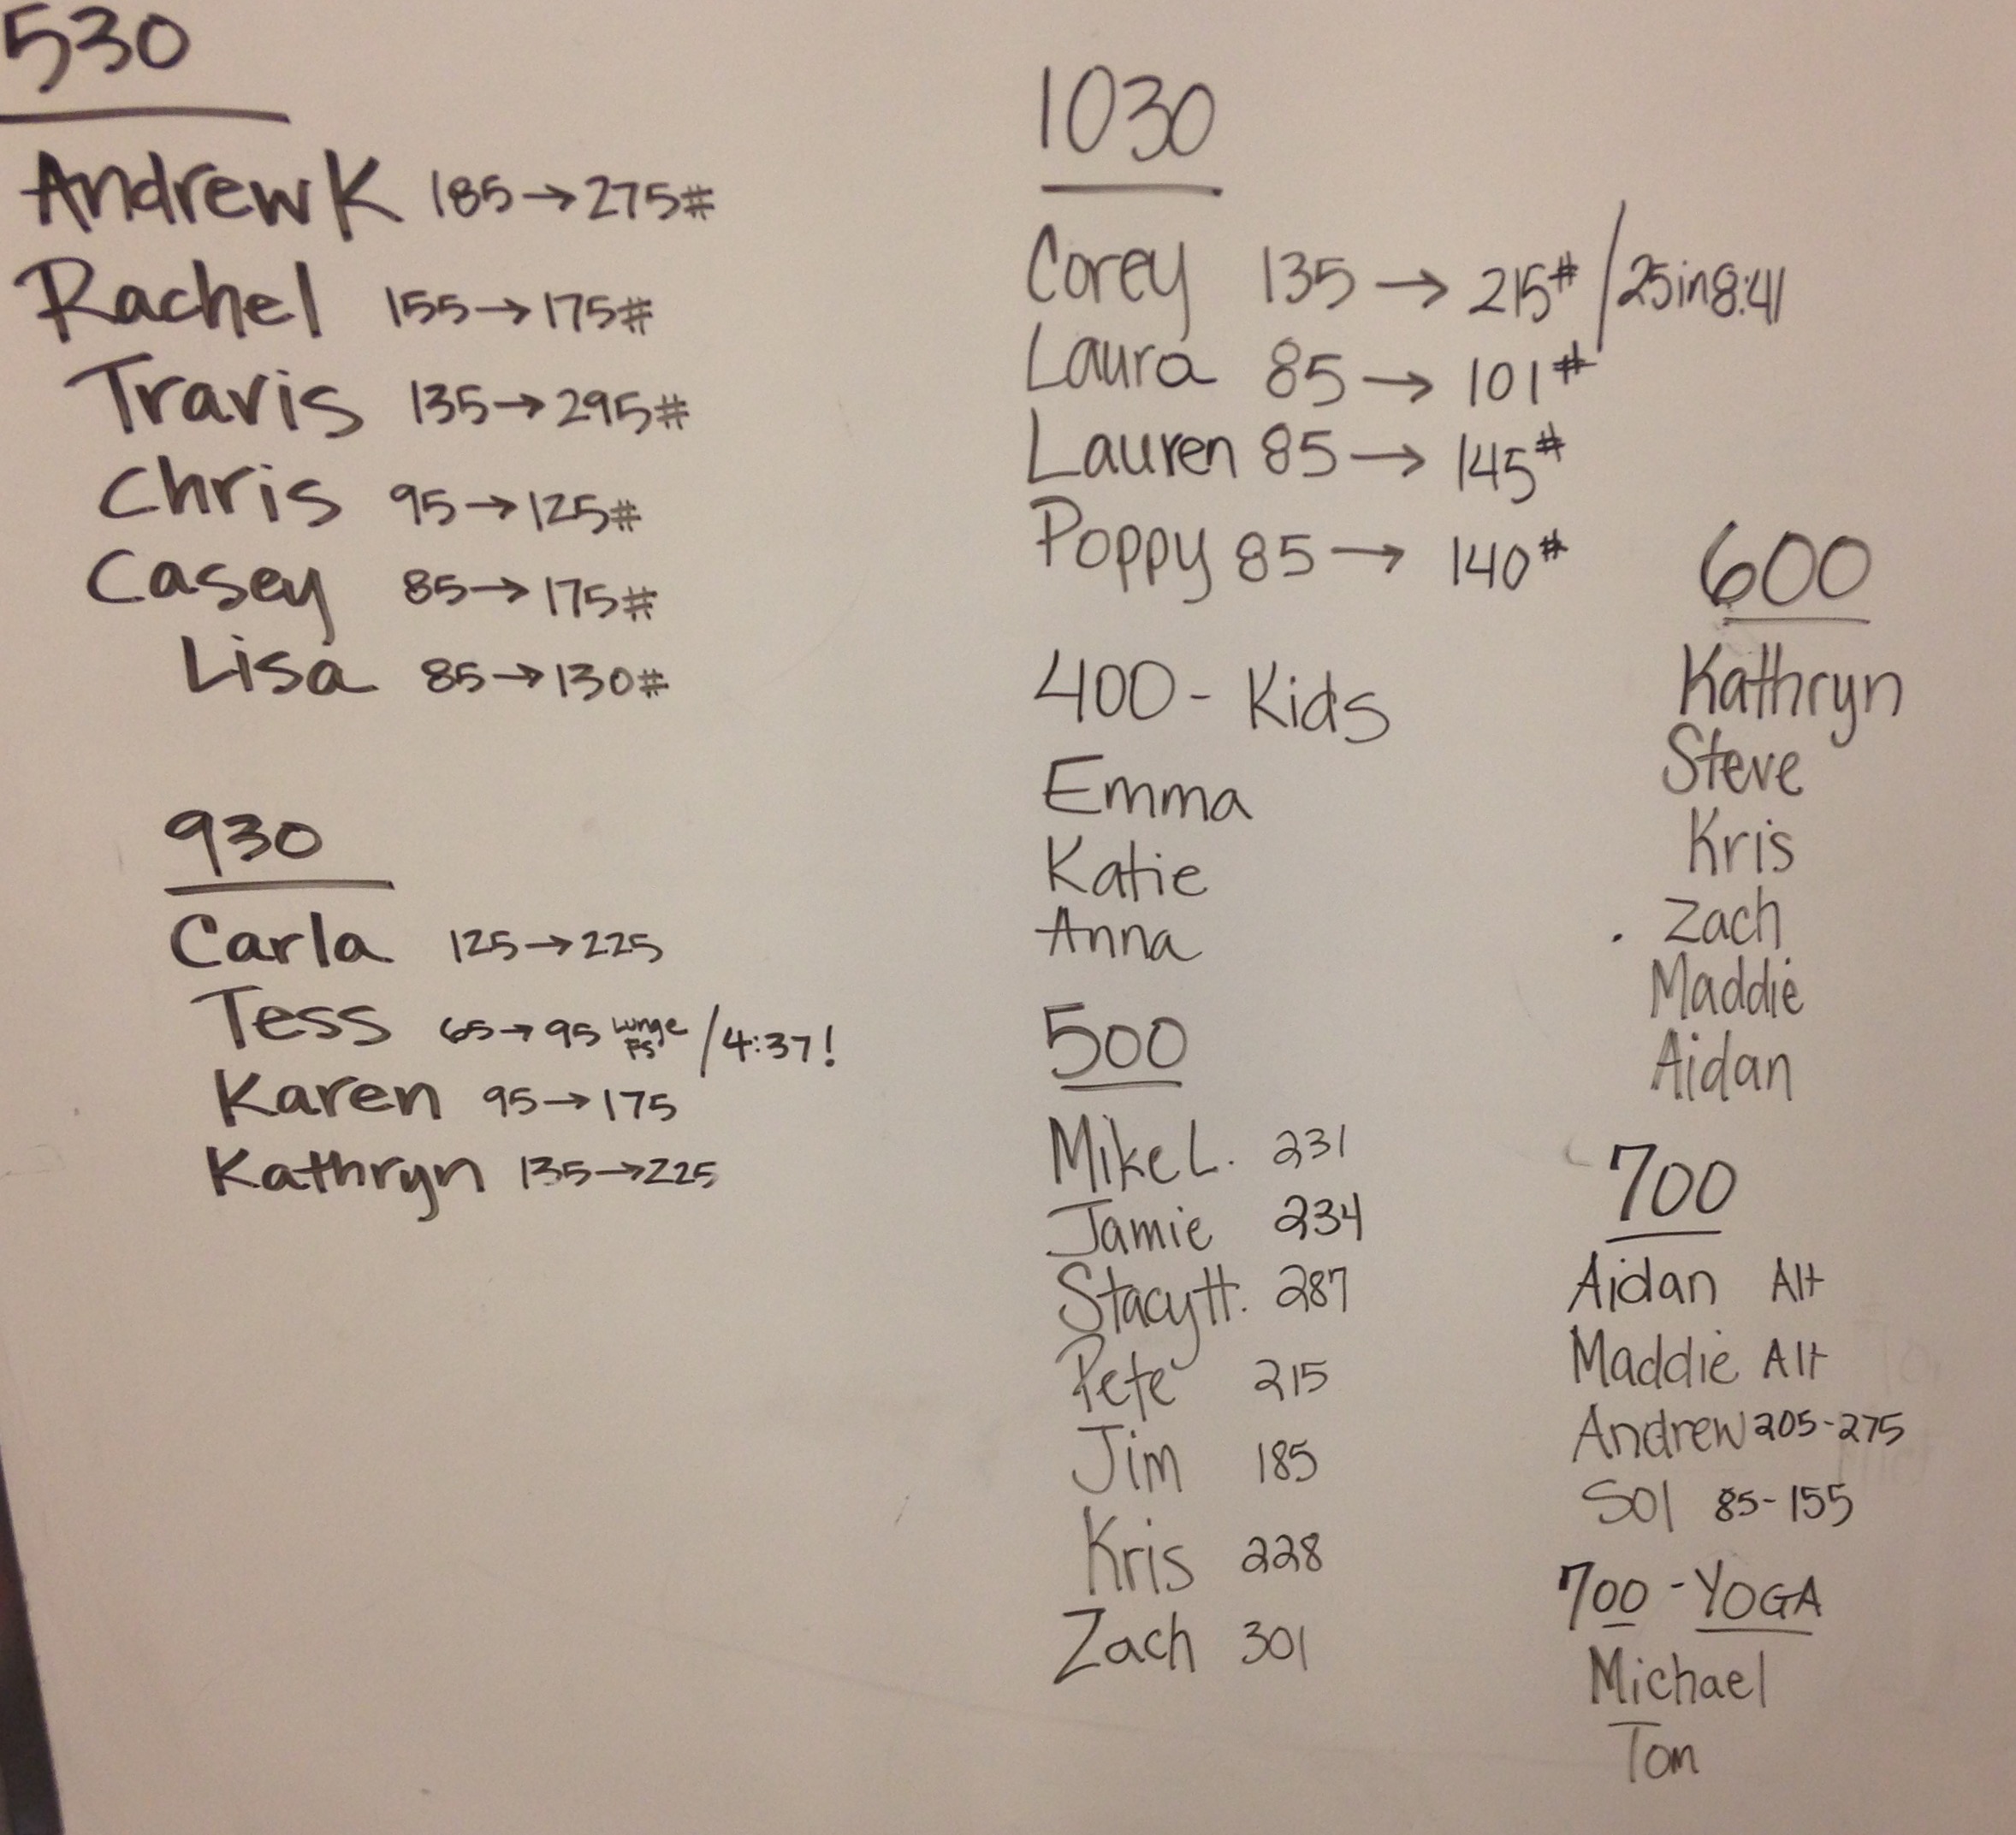 530
Andrew K 185→275#
Rachel 155→175#
Travis 135→295#
Chris 95→125#
Casey 85→175#
Lisa 85→130#
930
Carla 125→225
Tess 65→95 Lunge FS /4:37!
Karen 95→175
Kathryn 135→225
1030
Corey 135→215# /25in8:41
Laura 85→101#
Lauren 85→145#
Poppy 85→140#
400- Kids
Emma
Katie
Anna
500
Mike L. 231
Jamie 234
Stacy H. 287
Pete 215
Jim 185
Kris 228
Zach 301
600
Kathryn
Steve
Kris
Zach
Maddie
Aidan
700
Aidan Alt
Maddie Alt
Andrew 205-275
Sol 85-155
700 - YOGA
Michael
Tom